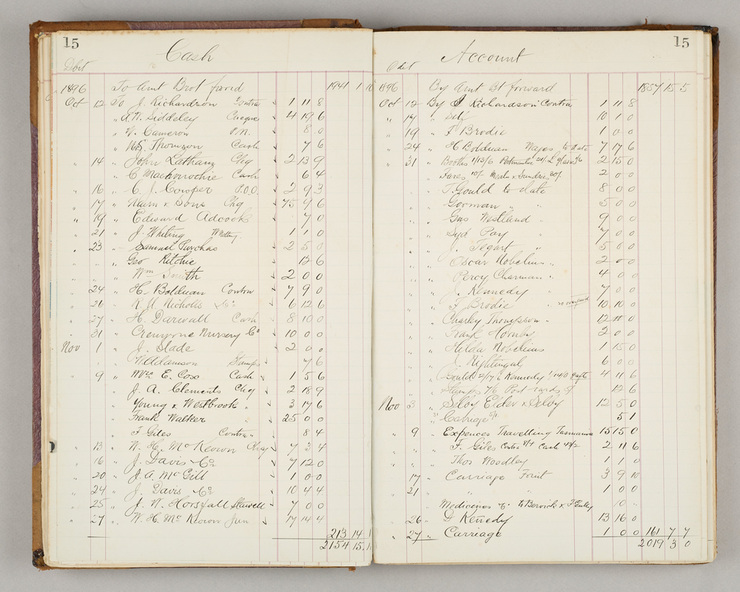 15
Cash
Debit
1896 To Amt Brot forwd 1941 1
Oct 12 To J. Richardson Contra 1 11 8
" A. W. Siddeley Cheque 4 19 6
" W. Cameron P.N. 8 0
" Thomson Cash 7 6
" 14 John Latham Chq 2 13 9
" C Machonochie Cash 6 4
" 16 C. J. Cowper P.O.O. 2 9 3
" 17 & Sons Chq 75 4 6
" 19 Edward Adcock 7 0
" 21 J. Whiting 1 1 0
" 23 Samuel Purchas 2 5 0
" Geo Ritchie 13 6
" Wm Smith 2 0 0
" 24 H. Bolduan Contra 7 9 0
" 26 R. J. Nicholls Do 6 12 6
" 27 H. Durwall Cash 8 10 0
" 31 Nursery Co 10 0 0
Nov 1 J. Slade 2 0 0
W Adamson Stamps 7 6
" 9 Mrs E. Cox Cash 1 5 6
J. A. Clements Chq 2 18 9
Young & Westbrook " 3 17 6
Frank Walter " 25 0 0
J Giles Contra 8 4
" 13 W. H. McKeown Chq 7 3 4
" 16 J. Davis & Co 7 12 0
" 20 J. A. McGill 1 0 0
" 24 J. Davis & Co 10 4 4
" 25 J. W. Horsfall Stawell 7 0 0
" 27 W. H. McKeown Jun 17 14 4
213 14 1
2154 15 1
15
Account
1896 By Amt Bt forward 1857 15 5
Oct 12 By J Richardson Contra 1 11 8
" 14 10 1 0
" 19 J Brodie 1 0 0
" 24 H Bolduan Wages to date 7 17 6
" 31 2 15 0
2 0 0
J Gould to date 8 0 0
Gorman " 5 0 0
Gus Westland " 9 0 0
Syd Pay " 7 0 0
J. Sogart " 5 0 0
Oscar Nobelius " 2 0 0
Percy Charman " 4 0 0
J. Kennedy " 7 0 0
J Brodie 10 10 0
Charley Thompson " 12 0 0
Frank Hornby 2 0 0
Hilda Nobelius 1 15 0
J Nightingal 6 0 0
4 11 6
12 6
Nov 3 Selby Elder & Selby 12 5 0
Carriage 5 1
" 9 Expences Travelling Tasmania 15 15 0
" J. Giles Cash 2 11 6
" Thos Woolley 1 1 0
" 17 Carriage Fruit 3 9 10
" 21 " " 1 0 0
Medicines & to Berwick & 1 0 0
" 26 G Kennedy 13 16 0
" 27 Carriage 1 0 0 161 7 7
2019 3 0